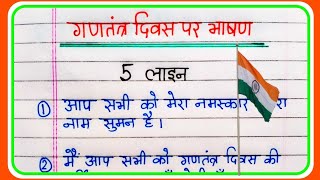 गणतंत्र दिवस पर भाषण
5 लाइन
① आप सभी को मेरा नमस्कार
नाम सुमन है।
② मैं आप सभी को गणतंत्र दिवस की